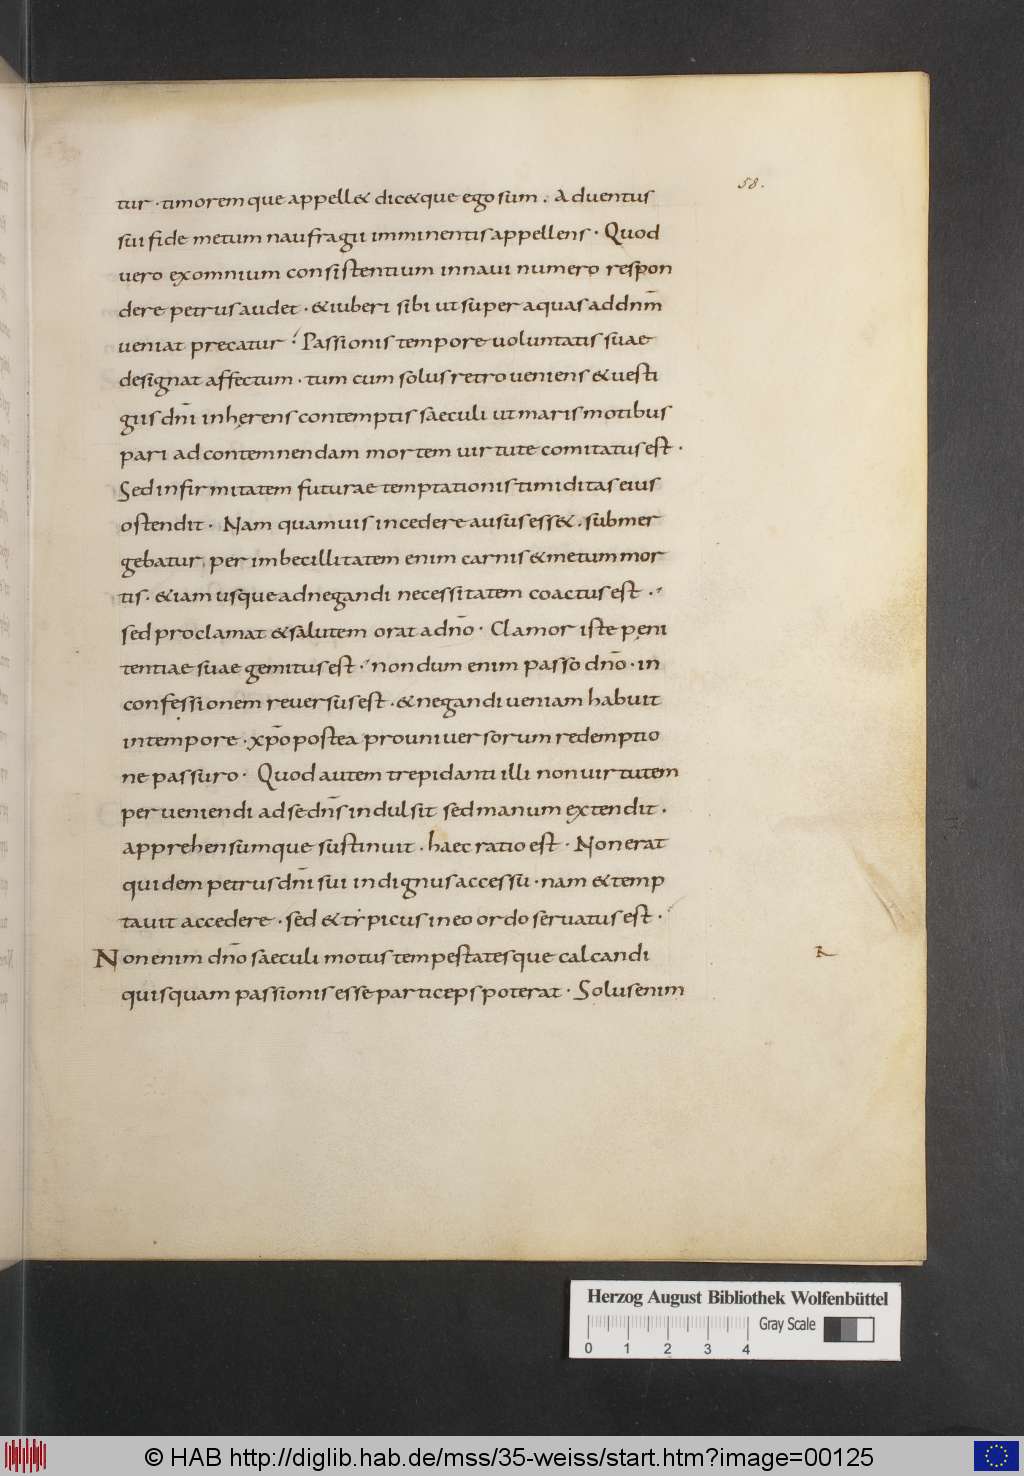 58.
tur · timoremque appell& dic&que ego sum . Aduentus
sui fide metum naufragii imminentis appellens · Quod
vero ex omnium consistentium in naui numero respon
dere petrus audet · & iuberi sibi ut super aquas ad dn̄m
ueniat precatur · Passionis tempore uoluntatis suae
designat affectum · tum cum solus retro ueniens & uesti
giis dn̄i inherens contemptis saeculi ut maris motibus
pari ad contemnendam mortem uirtute comitatus est ·
Sed infirmitatem futurae temptationis timiditas eius
ostendit · Nam quamuis incedere ausus ess& . submer
gebatur, per imbecillitatem enim carnis & metum mor
tis . & iam usque ad negandi necessitatem coactus est .
sed proclamat & salutem orat a dn̄o · Clamor iste peni
tentiae suae gemitus est · nondum enim passo dn̄o · in
confessionem reuersus est . & negandi ueniam habuit
in tempore · xp̄o postea pro uniuersorum redemptio
ne passuro · Quod autem trepidanti illi non uirtutem
perueniendi ad se dn̄s indulsit sed manum extendit .
apprehensumque sustinuit . haec ratio est · Non erat
quidem petrus dn̄i sui indignus accessu · nam & temp
tauit accedere · sed & tẏpicus in eo ordo seruatus est ·
Non enim dn̄o saeculi motus tempestatesque calcandi
quisquam passionis esse particeps poterat · Solus enim
R
Herzog August Bibliothek Wolfenbüttel
Gray Scale
0 1 2 3 4
© HAB http://diglib.hab.de/mss/35-weiss/start.htm?image=00125